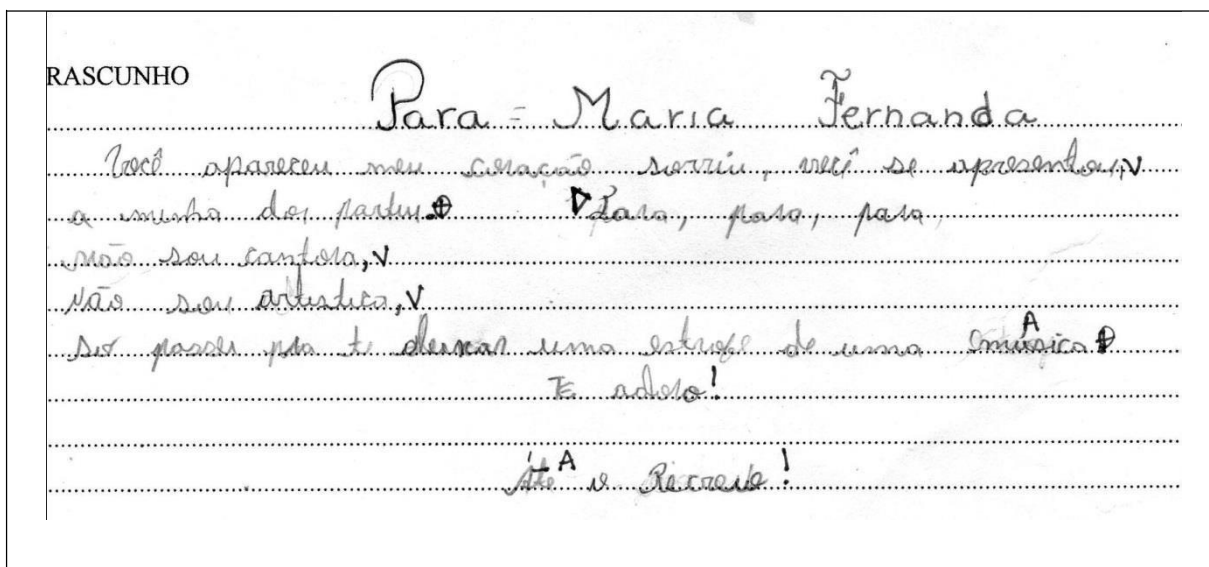 RASCUNHO
Para = Maria Fernanda
Você apareceu meu coração sorriu, você se apresentou, V
a minha dor partiu. P Para, para, para,
não sou cantora, V
Não sou artistica, V
Sor passei pra te deixar uma estrofe de uma A música P
TE adoro!
Até A o Recreio!